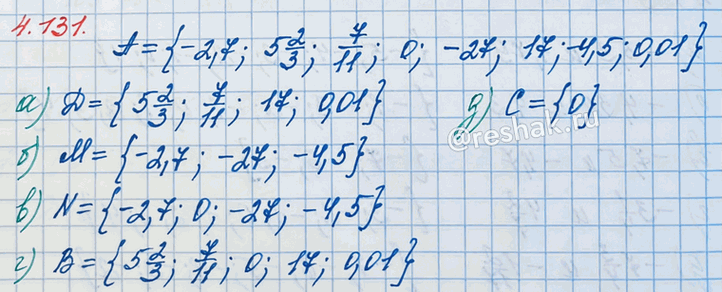 4.131.
A = {-2,7; 5 2/3; 7/11; 0; -27; 17; -4,5; 0,01}
а) D = {5 2/3; 7/11; 17; 0,01} д) C = {0}
@reshak.ru
б) M = {-2,7; -27; -4,5}
в) N = {-2,7; 0; -27; -4,5}
г) B = {5 2/3; 7/11; 0; 17; 0,01}